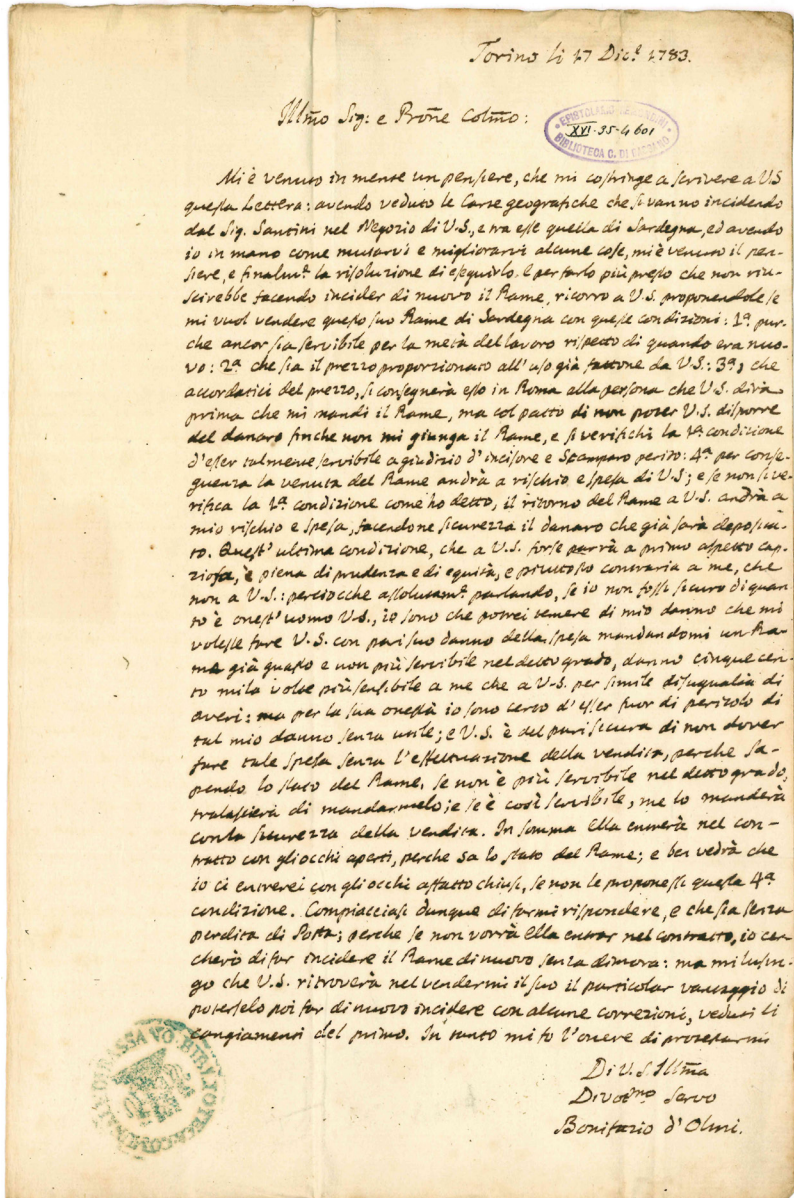 Torino li 17 Dic.e 1783.
Ill̃mo Sig: e Prõne Colm̃o:
EPISTOLARIO REMONDINI
XVI-35-4601
BIBLIOTECA C. DI BASSANO
Mi è venuto in mente un pensiere, che mi costringe a scrivere a V.S
questa Lettera: avendo veduto le Carte geografiche che si vanno incidendo
dal Sig. Santini nel Negozio di V.S., e tra esse quella di Sardegna, ed avendo
io in mano come mutarvi e migliorarvi alcune cose, mi è venuto il pen-
siere, e finalm.t la risoluzione di eseguirlo. E per farlo più presto che non riu-
scirebbe facendo incider di nuovo il Rame, ricorro a V.S. proponendole se
mi vuol vendere questo suo Rame di Sardegna con queste condizioni: 1.a pur-
che ancor sia servibile per la metà del lavoro rispetto di quando era nuo-
vo: 2.a che sia il prezzo proporzionato all'uso già fattone da V.S.: 3.a, che
accordatici del prezzo, si consegnerà esso in Roma alla persona che V.S. dirà
prima che mi mandi il Rame, ma col patto di non poter V.S. disporre
del danaro finche non mi giunga il Rame, e si verifichi la 1.a condizione
d'esser talmente servibile a giudizio d'incisore e Stamparo perito: 4.a per conse-
guenza la venuta del Rame andrà a rischio e spesa di V.S; e se non si ve-
rifica la 1.a condizione come ho detto, il ritorno del Rame a V.S. andrà a
mio rischio e spesa, facendone sicurezza il danaro che già sarà deposita-
to. Quest'ultima condizione, che a V.S. forse parrà a primo aspetto cap-
ziosa, è piena di prudenza e di equità, e piuttosto contraria a me, che
non a V.S.: perciocche assolutam.t parlando, se io non fossi sicuro di quan-
to è onest'uomo V.S., io sono che potrei temere di mio danno che mi
volesse fare V.S. con pari suo danno della spesa mandandomi un Ra-
me già guasto e non più servibile nel detto grado, danno cinquecen-
to mila volte più sensibile a me che a V.S. per simile disugualià di
averi: ma per la sua onestà io sono certo d'esser fuor di pericolo di
tal mio danno senza utile; e V.S. è del pari sicura di non dover
fare tale spesa senza l'effettuazione della vendita, perche sa-
pendo lo stato del Rame, se non è più servibile nel detto grado,
tralascerà di mandarmelo; e se è così servibile, me lo manderà
con la sicurezza della vendita. In somma Ella entrerà nel con-
tratto con gli occhi aperti, perche sa lo stato del Rame; e ben vedrà che
io ci entrerei con gli occhi affatto chiusi, se non le proponessi questa 4.a
condizione. Compiacciasi dunque di farmi rispondere, e che sia senza
perdita di Posta; perche se non vorrà Ella entrar nel contratto, io cer-
cherò di far incidere il Rame di nuovo senza dimora: ma mi lusin-
go che V.S. ritroverà nel vendermi il suo il particolar vantaggio di
poterselo poi far di nuovo incidere con alcune correzioni, veduti li
cangiamenti del primo. In tanto mi fo l'onore di protestarmi
Di V.S. Ill̃ma
Divot̃mo Servo
Bonifazio d'Olmi.
BIBLIOTECA COMUNALE DI BASSANO